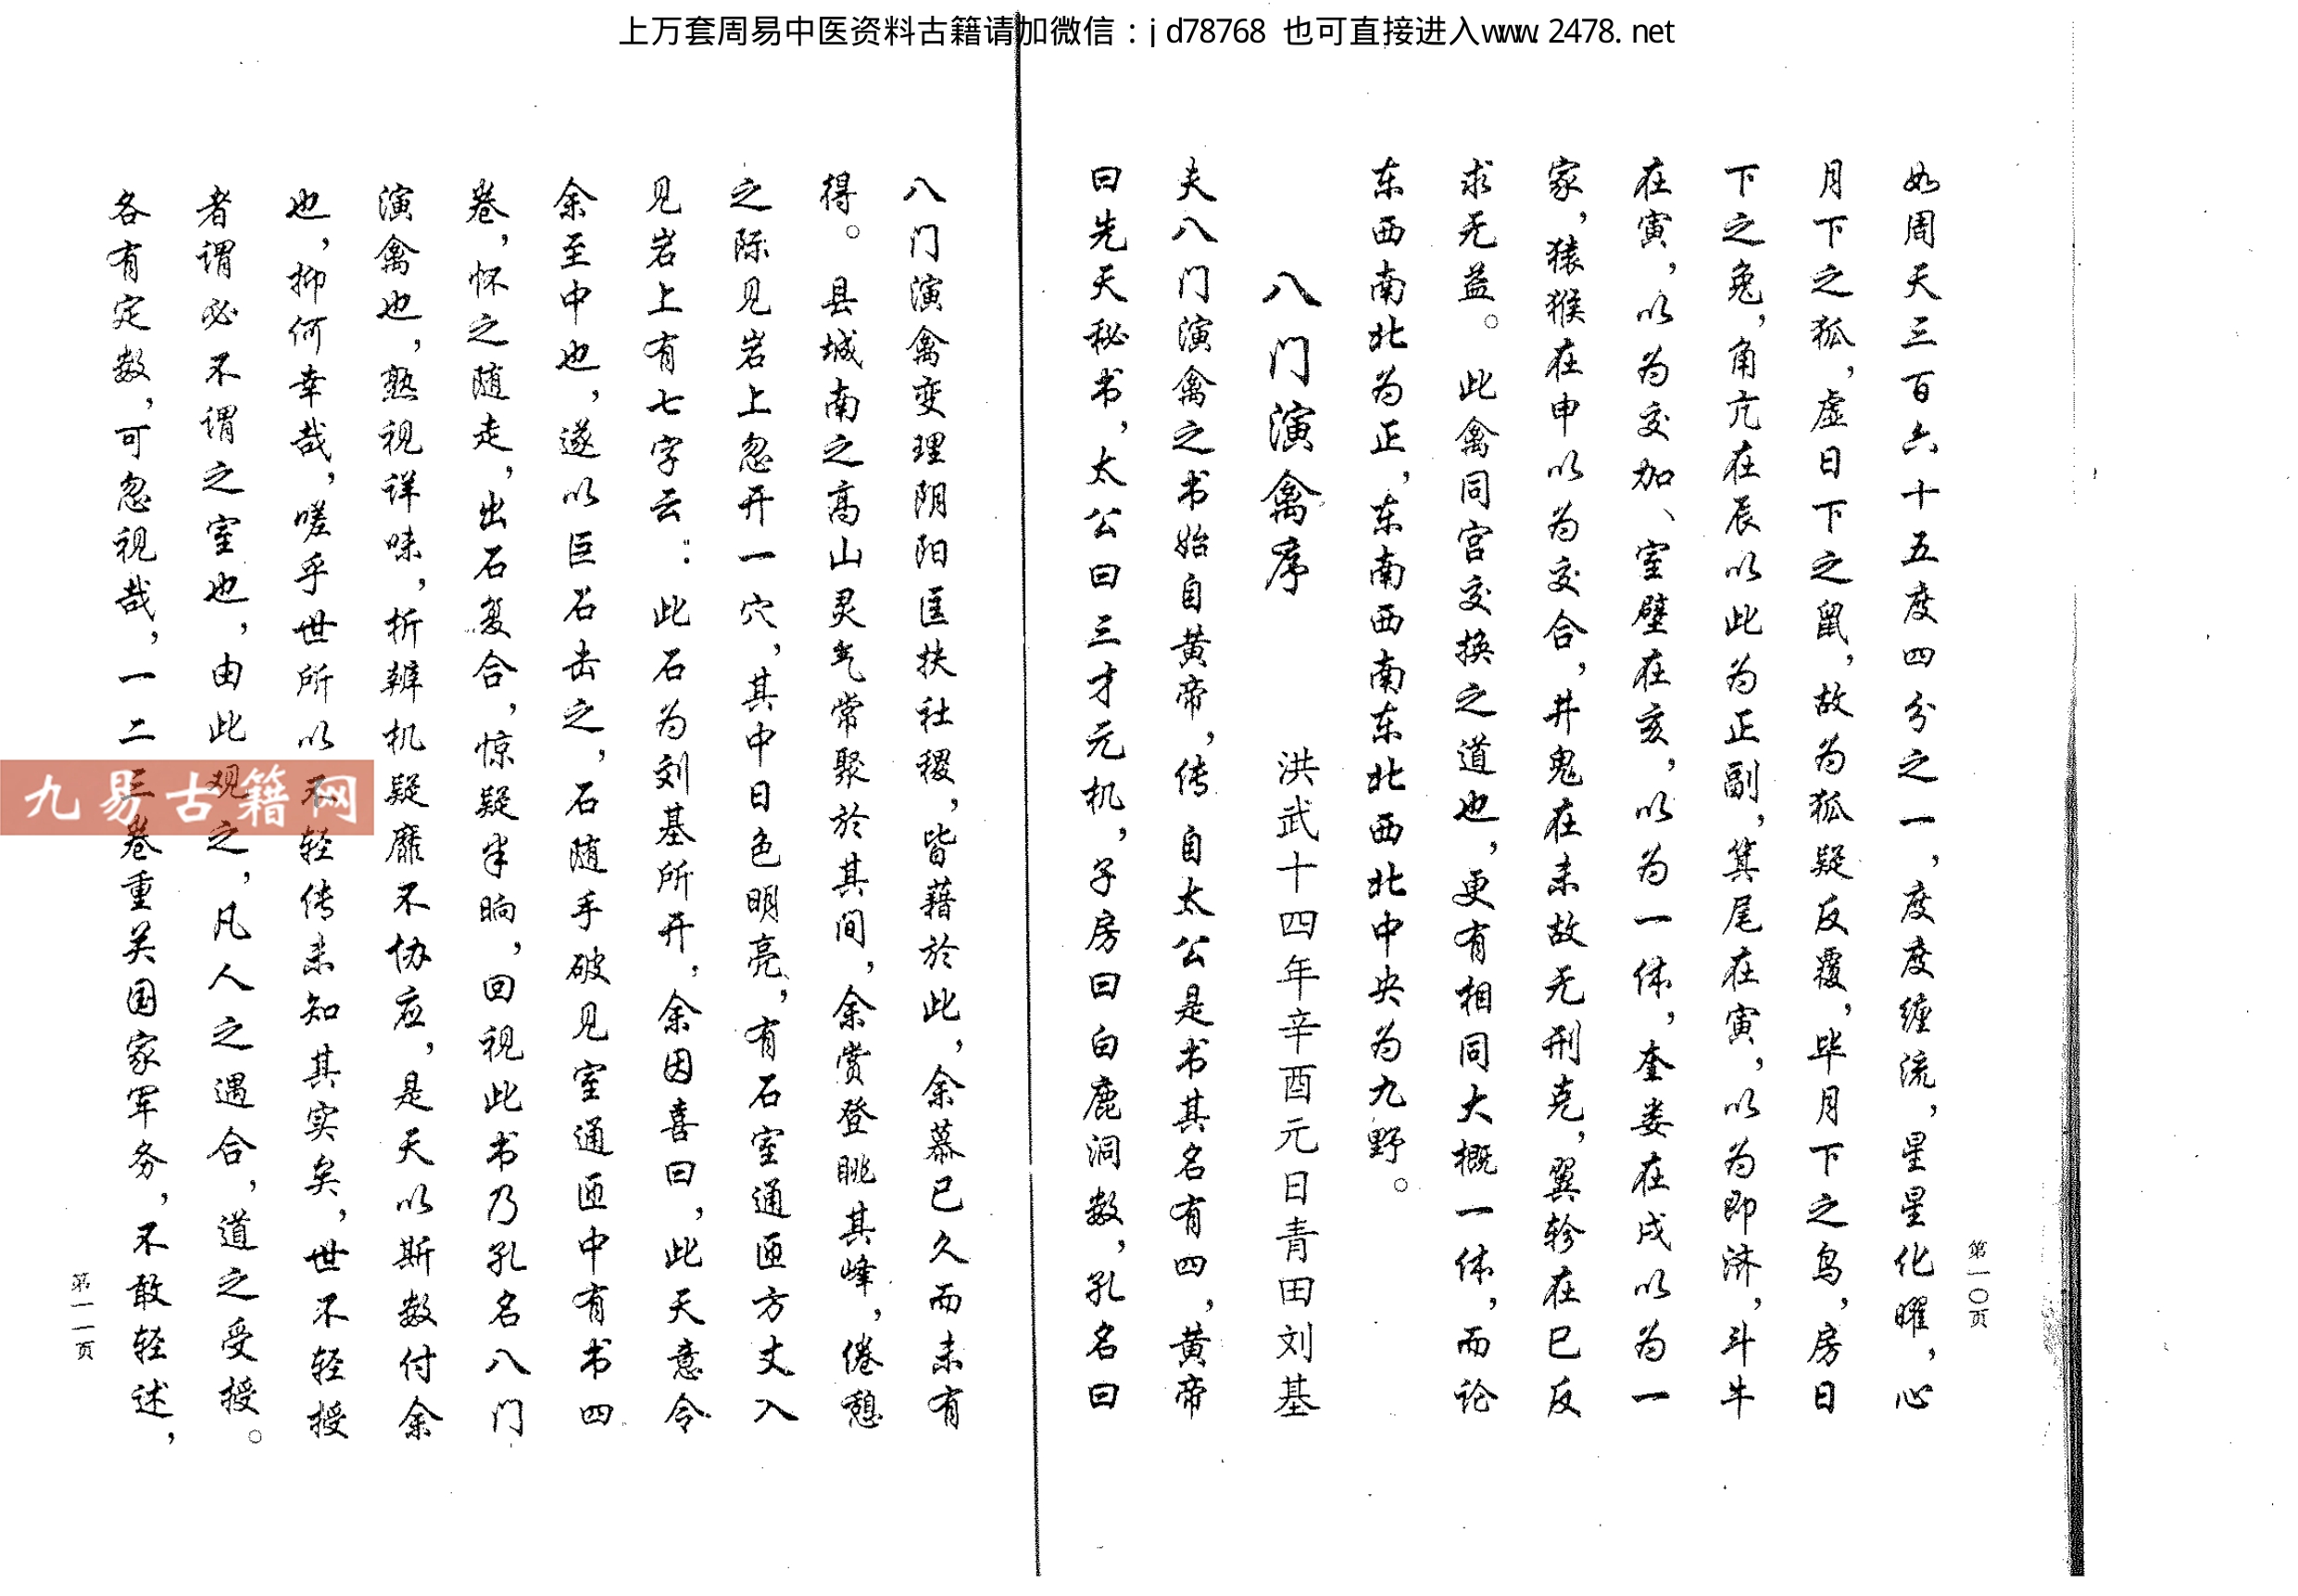 上万套周易中医资料古籍请加微信：jd78768 也可直接进入www.2478.net
第一〇页
如周天三百六十五度四分之一，度度缠流，星星化曜，心
月下之狐，虚日下之鼠，故为狐疑反覆，毕月下之鸟，房日
下之兔，角亢在辰以此为正副，箕尾在寅，以为即济，斗牛
在寅，以为交加、室壁在亥，以为一体，奎娄在戌以为一
家，猿猴在申以为交合，井鬼在未故无刑克，翼轸在巳反
求无益。此禽同宫交换之道也，更有相同大概一体，而论
东西南北为正，东南西南东北西北中央为九野。
八门演禽序
洪武十四年辛酉元日青田刘基
夫八门演禽之书始自黄帝，传自太公是书其名有四，黄帝
曰先天秘书，太公曰三才元机，子房曰白鹿洞数，孔名曰
八门演禽变理阴阳匡扶社稷，皆藉於此，余慕已久而未有
得。县城南之高山灵气常聚於其间，余赏登眺其峰，倦憩
之际见岩上忽开一穴，其中日色明亮，有石室通匝方丈入
见岩上有七字云：此石为刘基所开，余因喜曰，此天意令
余至中也，遂以巨石击之，石随手破见室通匝中有书四
卷，怀之随走，出石复合，惊疑半晌，回视此书乃孔名八门
演禽也，熟视详味，折辨机疑靡不协应，是天以斯数付余
也，抑何幸哉，嗟乎世所以不轻传未知其实矣，世不轻授
者谓必不谓之室也，由此观之，凡人之遇合，道之受授。
各有定数，可忽视哉，一二三卷重关国家军务，不敢轻述，
第一一页
九易古籍网